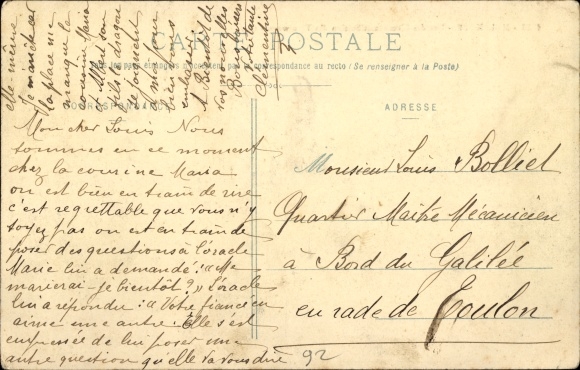 CARTE POSTALE
au recto (Se renseigner à la Poste)
CORRESPONDANCE
ADRESSE
Mon cher Louis Nous
sommes en ce moment
chez la cousine Maria
on est bien en train de rire
c'est regrettable que vous n'y
soyez pas on est en train de
poser des questions à l'oracle
Marie lui a demandé : "Me
marierai-je bientôt ?" L'oracle
lui a répondu : "Votre fiancé en
aime une autre. Elle s'est
empressée de lui poser une
autre question qu'elle va vous dire
elle même
Je m'arrête car
la place me
manque la
cousine Maria
et Albert son
fils le dragon
se joignent
à moi pour
bien vous
embrasser
A Bientôt de
vos nouvelles
Bons baisers
Clementine
Monsieur Louis Bolliet
Quartier Maître Mécanicien
à Bord du Galilée
en rade de Toulon
92